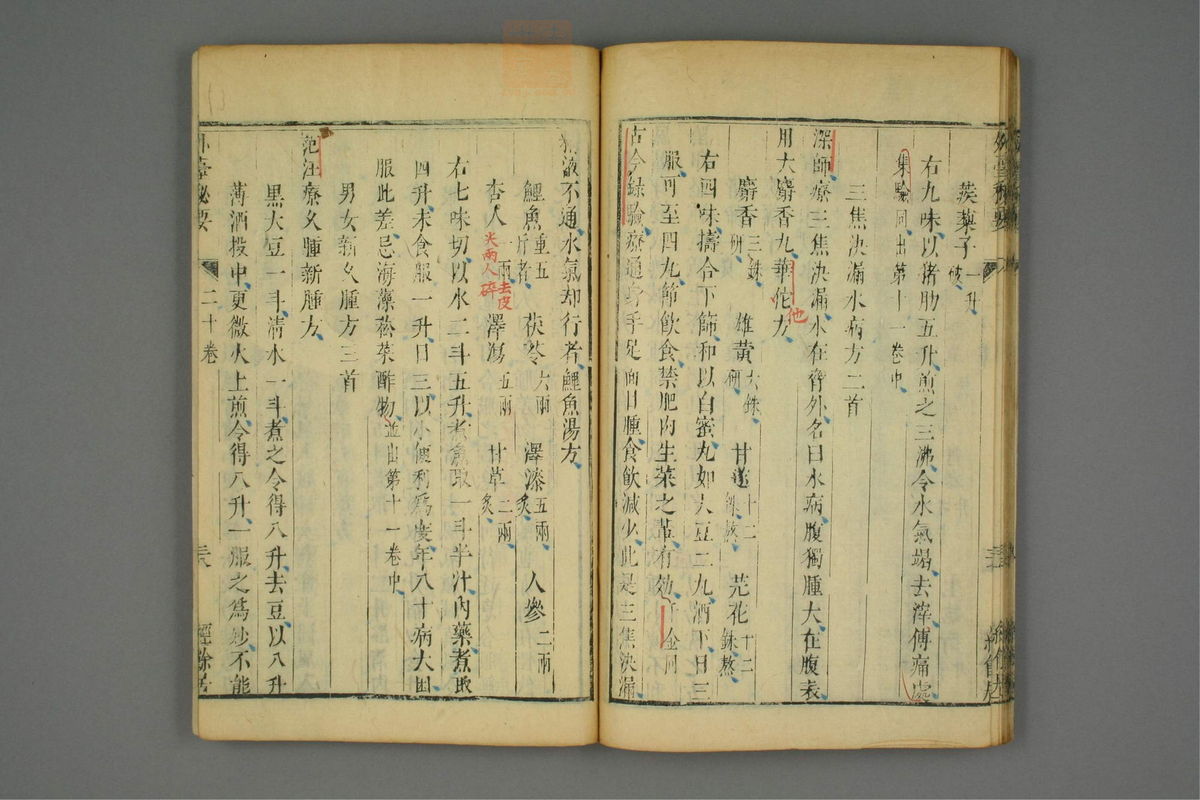 蒺藜子一升破
右九味以猪肪五升煎之三沸令水氣竭去滓傅痛處
集驗同出第十一卷中
三焦決漏水病方二首
深師療三焦決漏水在脅外名曰水病腹獨腫大在腹表
用大麝香丸華佗方
他
麝香三銖研 雄黄六銖研 甘遂十二銖熬 芫花十二銖熬
右四味擣合下篩和以白蜜丸如大豆二丸酒下日三
服可至四丸節飲食禁肥肉生菜之輩有効千金同
古今録驗療通身手足面目腫食飲減少此是三焦決漏
精液不通水氣却行者鯉魚湯方
鯉魚重五斤者 茯苓六兩 澤漆五兩炙 人參二兩
杏人一兩去皮尖兩人碎 澤瀉五兩 甘草二兩炙
右七味切以水二斗五升煮魚取一斗半汁内藥煮取
四升未食服一升日三以小便利為度年八十病大困
服此差忌海藻菘菜酢物並出第十一卷中
男女新久腫方三首
范汪療久腫新腫方
黒大豆一斗清水一斗煮之令得八升去豆以八升
薄酒投中更微火上煎令得八升一服之為妙不能
外臺秘要 二十卷 經餘居